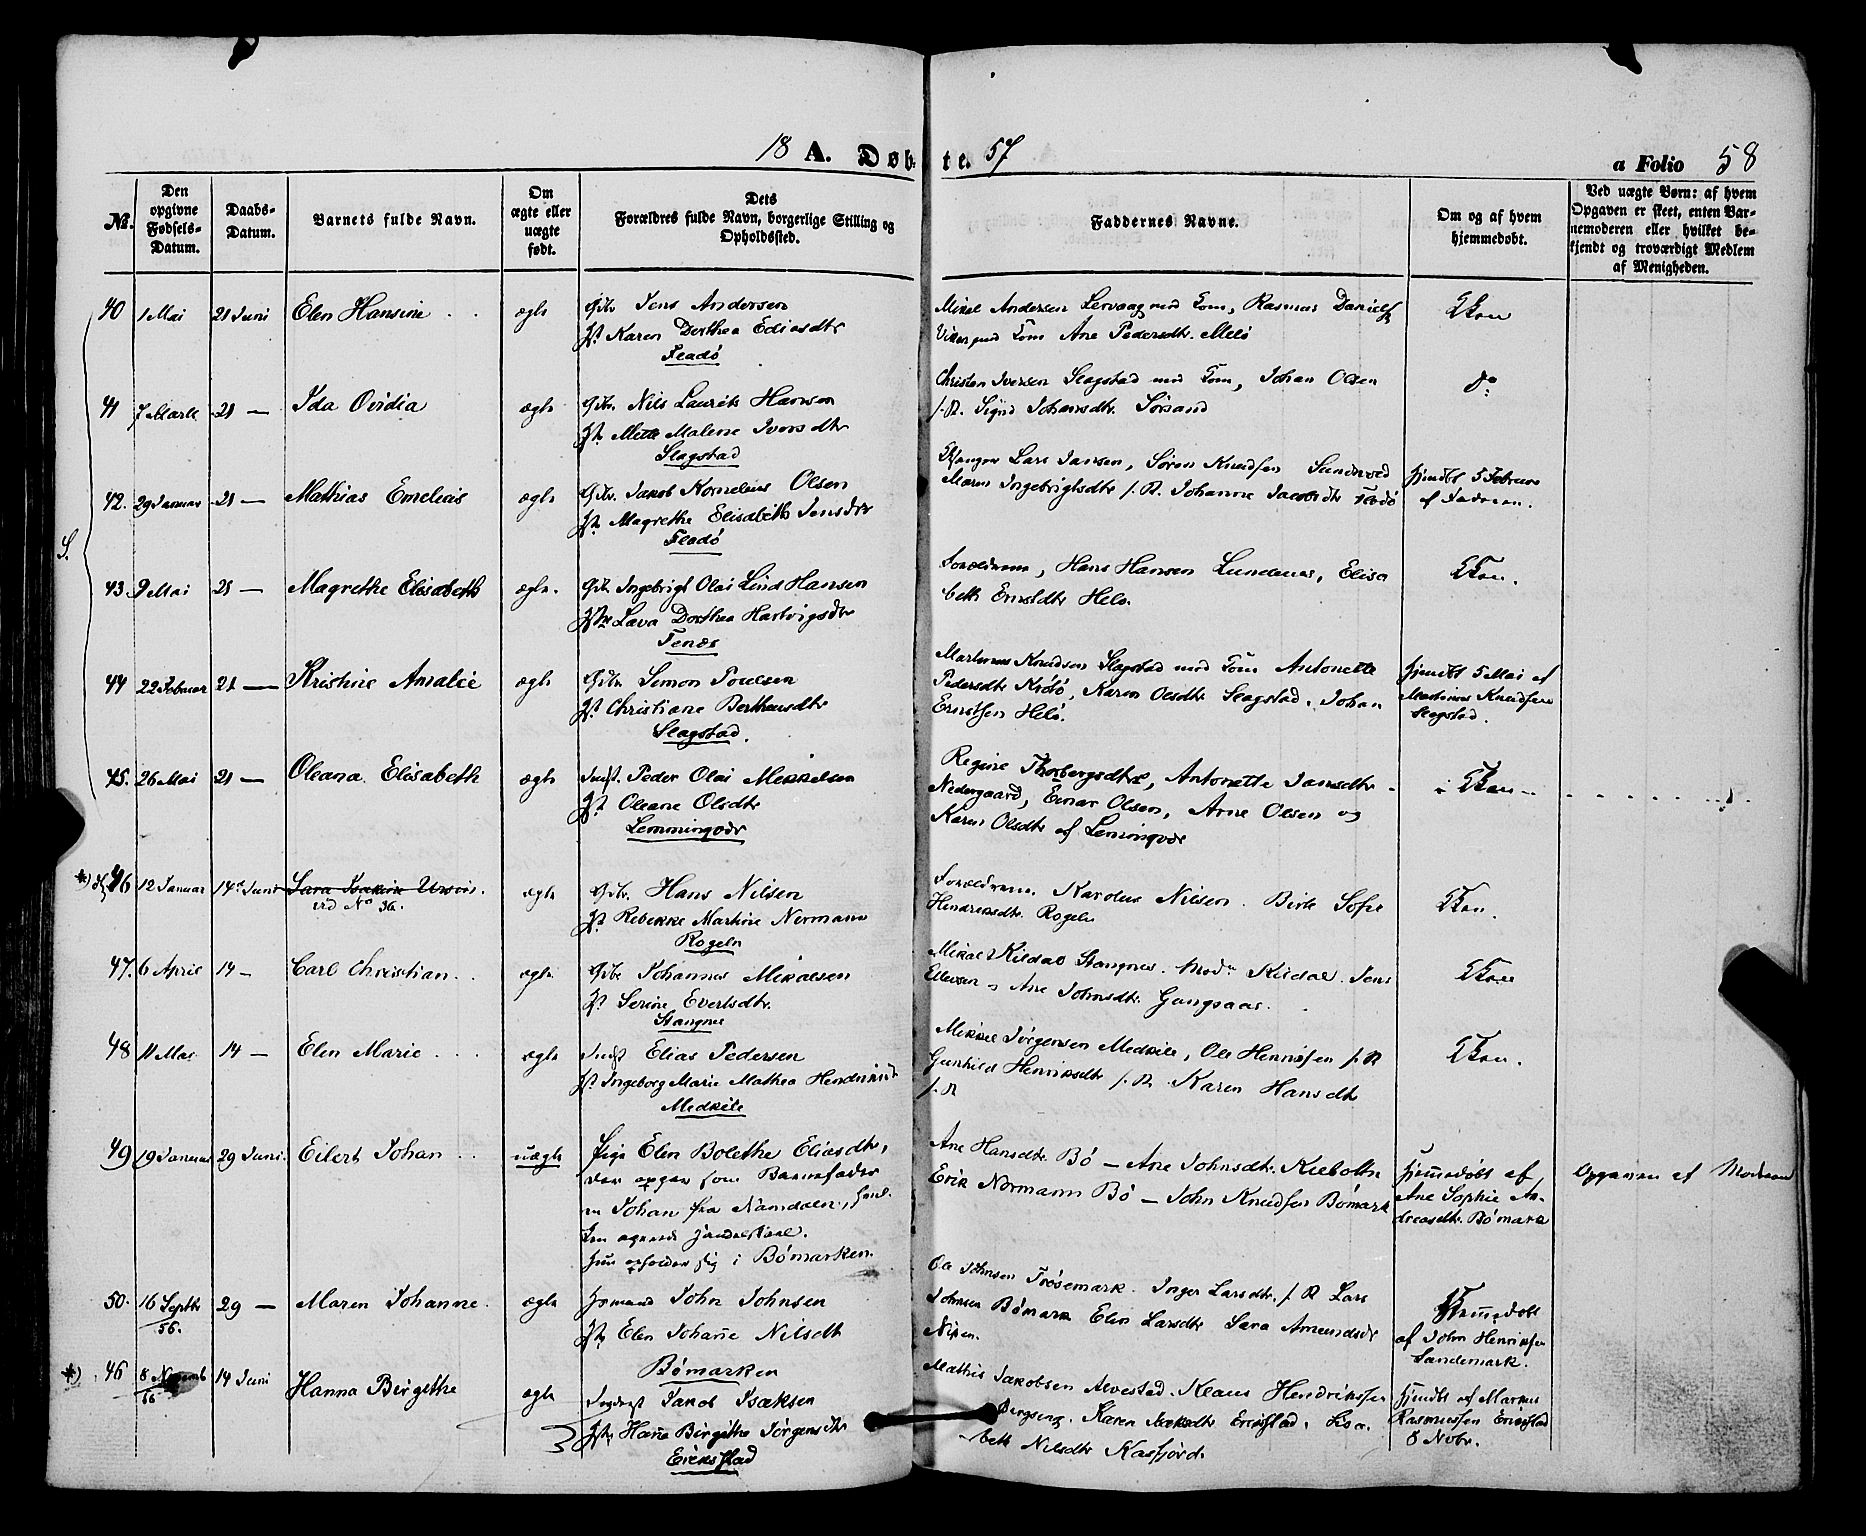 18 A. Døbte. 57
a Folio 58
No. | Den opgivne Fødsels-Datum. | Daabs-Datum. | Barnets fulde Navn. | Om ægte eller uægte født. | Dets Forældres fulde Navn, borgerlige Stilling og Opholdssted. | Faddernes Navne. | Om og af hvem hjemmedøbt. | Ved uægte Børn: af hvem Opgaven er skeet, enten Barnemoderen eller hvilket bekjendt og troværdigt Medlem af Menigheden.
S.
40 1 Mai 21 Juni Elen Hansine ægte Gbr. Jens Andersen
H. Karen Dorthea Eliasdtr
Fladø
Mikal Andersen Lervaag med Kone, Rasmus Daniels
med Kone Ane Pedersdtr. Melø
Kkan
41 7 Marts 21 — Ida Ovidia ægte Gbr. Nils Laurits Hansen
H. Mette Malene Iversdtr
Slagstad
Christen Iversen Slagstad med Kone, Johan Olsen
f. R. Signe Johansdtr. Sørsand
do
42. 29 Januar 21 — Mathias Emelius ægte Gbr. Jakob Kornelius Olsen
H. Magrethe Elisabeth Jensdtr
Fladø
Lars Jansen, Søren Knudsen
Maren Ingebrigtsdtr f. R. Johanne Jacobsdtr Fladø
hjemdbt 5 Februar
af Faderen.
43. 9 Mai 21 — Magrethe Elisabeth ægte. Gbr. Ingebrigt Olai Lind Hansen
H. Lava Dorthea Hartvigsdtr
Tenæs
Forældrene, Hans Hansen Lundenes, Elisa
beth Ernstdtr Helø.
Kkan.
44 22 Februar 21 — Kristine Amalie ægte Gbr Simon Poulsen
H. Christiane Berthensdtr
Slagstad.
Martinus Knudsen Slagstad med Kone Antonette
Pedersdtr Krøtø, Karen Olsdtr Slagstad, Johan
Ernstsen Helø.
hjemdbt 5 Mai af
Martinus Knudsen
Slagstad.
45. 26 Mai 21 — Oleana Elisabeth ægte Indst. Peder Olai Mikkelsen
H. Oleane Olsdtr
Lemmingvær
Regine Thorbergsdtr, Antonette Jansdtr
Nedergaard, Einar Olsen, Arne Olsen og
Karen Olsdtr af Lemingvær
Kkan
*) 46 12 Januar 14 Juni Sara Isakine Ursvis.
vid No 36.
ægte Gbr. Hans Nilsen
H. Rebekke Martine Normann
Rogeln
Forældrene. Karolus Nilsen. Birte Sofie
Hendriksdtr. Rogeln
Kkan.
47. 6 April 14 — Carl Christian ægte Gbr Johannes Mikalsen
H. Serine Evertsdtr.
Stangnes
Mikal Kildal Stangnes. Kildal. Jens
Ellevsen Ane Johnsdtr. Gangsaas.
Kkan
48 11 Mai 14 — Elen Marie ægte Indst Elias Pedersen
H. Ingeborg Marie Mathea Hendriksdtr
Medkile
Mikkel Jørgensen Medkile, Ole Henriksen f. R
Gunhild Henriksdtr f. R. Karen Hansdtr
f. R
Kkan.
49 19 Januar 29 Juni Eilert Johan uægte Pige Elen Bolethe Eliasdtr,
der opgav som Barnefader
en Johan fra Namdalen,
Hun opholder sig i Bømarken.
Ane Hansdtr. Bø — Ane Johnsdtr. Kilbotn
Erik Normann Bø — John Knudsen Bømark
Hjemmedøbt af
Ane Sophie An-
dreasdtr. Bømark
Opgaven af Moderen
50. 16 Septbr
56.
29 — Maren Johanne ægte Huusmand John Johnsen
H. Elen Johanne Nilsdt
Bømarken
Ole Johnsen Trøsemark. Inger Larsdtr. f. R Lars
Johnsen Bømark Elen Larsdtr Sara Amundsdtr

Hjemmedøbt
af John Henriksen
Sandemark.
*) 46 8 Novemb
56
14 Juni Hanna Birgithe ægte Inderst Jakob Isaksen
H. Hanne Birgithe Jørgensdtr
Eriksstad
Mathis Jakobsen Alvestad. Klaus Hendriksen
Bergseng. Karen Isaksdtr Erikstad. Lisa-
beth Nilsdtr Kasfjord.
hjemdbt af Markus
Rasmussen Erikstad
8 Novbr.